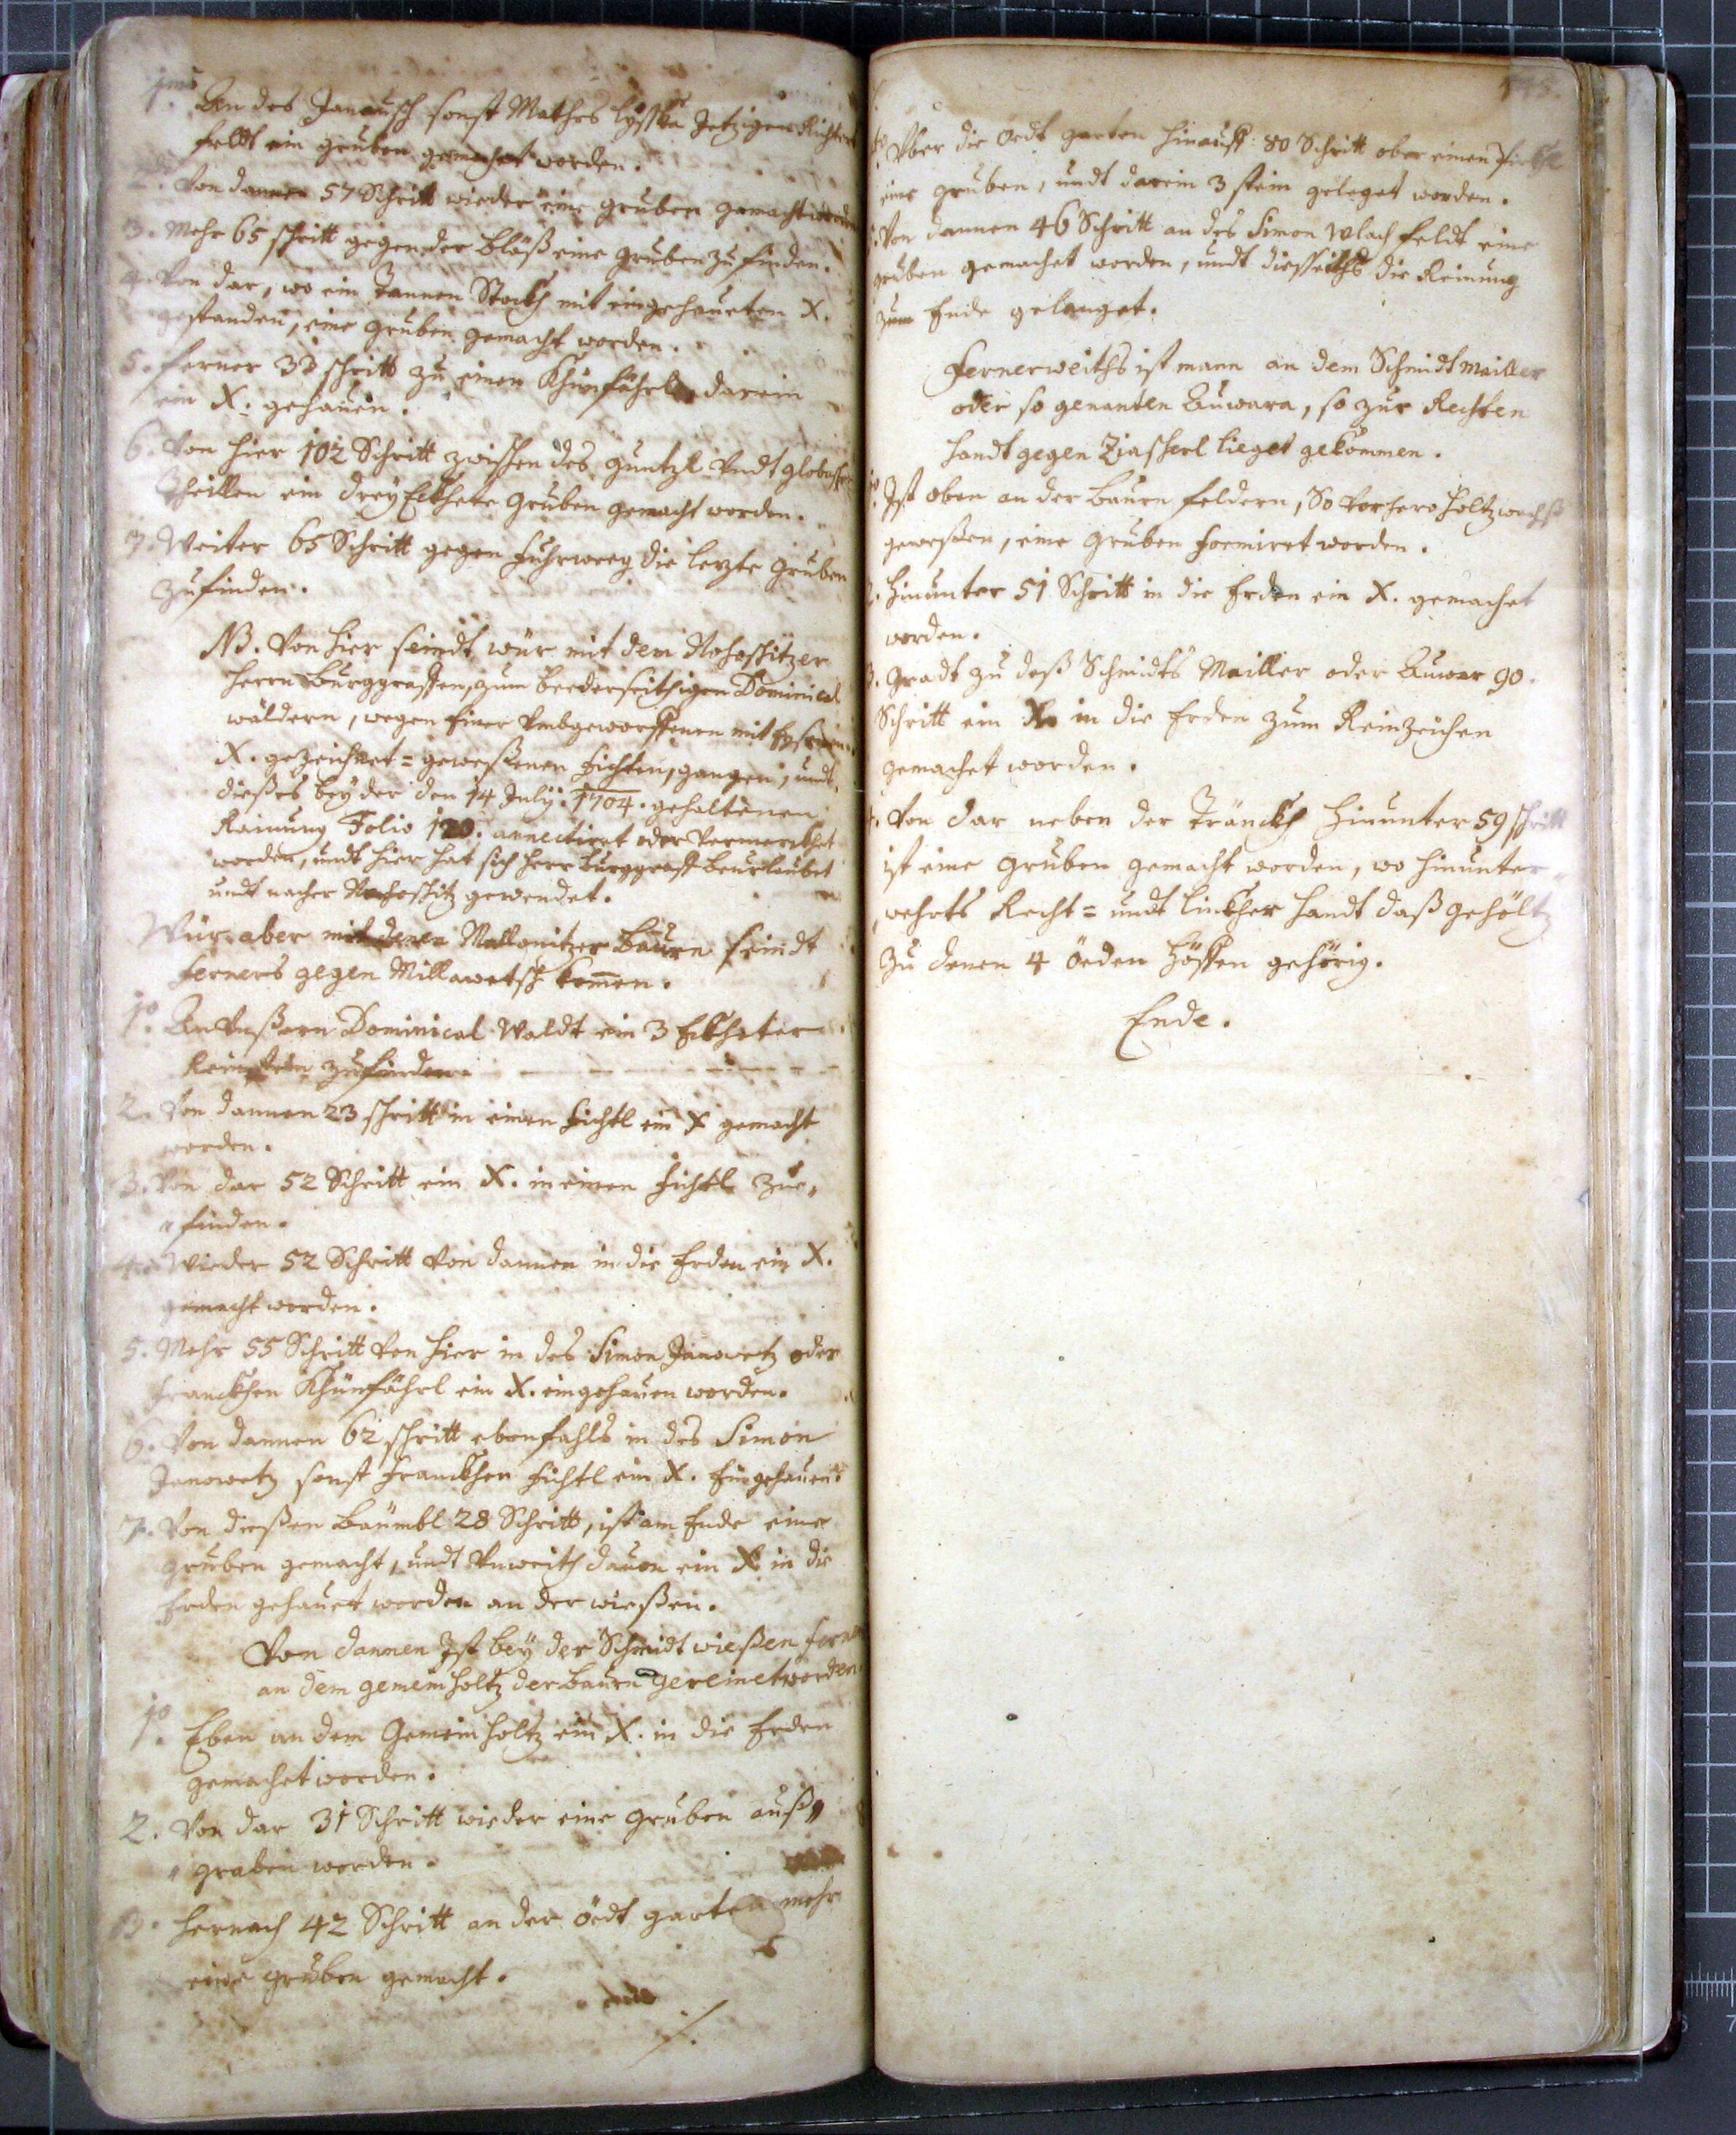 1mo An des Janausch sonst Mathes Jetzigen Richters
feldt ein gruben gemachet worden.
2. Von dannen 57 Schritt wieder eine gruben gemacht worden
3. Mehr 65 schritt gegen der bläß eine gruben zufinden.
4. Von dar, wo ein Tannen Stockh mit eingehaueten X.
gestanden, eine gruben gemacht worden.
5. ferner 33 schritt zu einen Khünföhrl darein
ein X. gehauen.
6. Von hier 102 Schritt zwischen des guntzl Vndt
theillen ein dreyEckhete gruben gemacht worden.
7. Weiter 65 Schritt gegen fuhrweeg die lezte gruben
zufinden.
NB. Von hier seindt wür mit dem
Herrn Burggraffen, zum beederseithigen Dominical
wäldern, wegen Einer Vmbgeworffenen mit
X. gezeichnet= geweßenen Fichten, gangen, undt
dießes bey der den 14 July. 1704. gehaltenen
Rainung Folio 120. annectiret oder Vermerckhet
worden, undt hier hat sich Herr Burggraff beurlaubet
undt nacher gewendet.
Wür aber mit denen Mallonitzer Baurn seindt
ferners gegen Millawetsch kommen.
1o. An Vnßern Dominical Waldt ein 3 Eckheter
Reinstein zufinden.
2. Von dannen 23 schritt in einen Fichtl ein X gemacht
worden.
3. Von dar 52 Schritt ein X. in einen Fichtl zue„
„finden.
4. Wieder 52 Schritt Von dannen in die Erden ein X.
gemacht worden.
5. Mehr 55 Schritt Von hier in des Simon Janowetz oder
Franckhen Khünföhrl ein X. eingehauen worden.
6. Von dannen 62 schritt ebenfahls in des Simon
Janowetz sonst Franckhen Fichtl ein X. Eingehauen.
7. Von dießen Bäumbl 28 Schritt, ist am Ende eine
gruben gemacht, undt Vnweith dauon ein X in die
Erden gehauet worden an der wießen.
Von dannen Ist bey der Schmidt wießen ferner
an dem gemein holtz der Baurn gereinet worden.
1o. Eben an dem Gemein holtz ein X. in die Erden
gemachet worden.
2. Von dar 31 Schritt wieder eine gruben auß„
„graben worden.
3. Hernach 42 Schritt an der öedt garten mehr
eine gruben gemacht.
./.
145.
4. Vber die oedt garten hinauff 80 Schritt ober einen
eine gruben, undt darein 3 stein geleget worden.
5. Von dannen 46 Schritt an des Simon Wlach feldt eine
gruben gemachet worden, undt diesseiths die Reinung
zum Ende gelanget.
Fernerweiths ist mann an dem Schmidt Mailler
oder so genanten Auwara, so zur Rechten
handt gegen lieget gekommen.
1o. Ist oben an der Baurn feldern, So Vorhero holtzwachß
geweßen, eine Gruben formiret worden.
2. Hinunter 51 Schritt in die Erden ein X. gemachet
worden.
3. Gradt zu deß Schmidts Mailler oder Auwar 90.
Schritt ein X. in die Erden zum Reinzeichen
gemachet worden.
4. Von dar neben der Tränckh hinunter 59 schritt
ist eine Gruben gemacht worden, wo hinunter„
„wehrts Recht= undt linckher handt daß gehöltz
zu denen 4 öeden Höffen gehörig.
Ende.